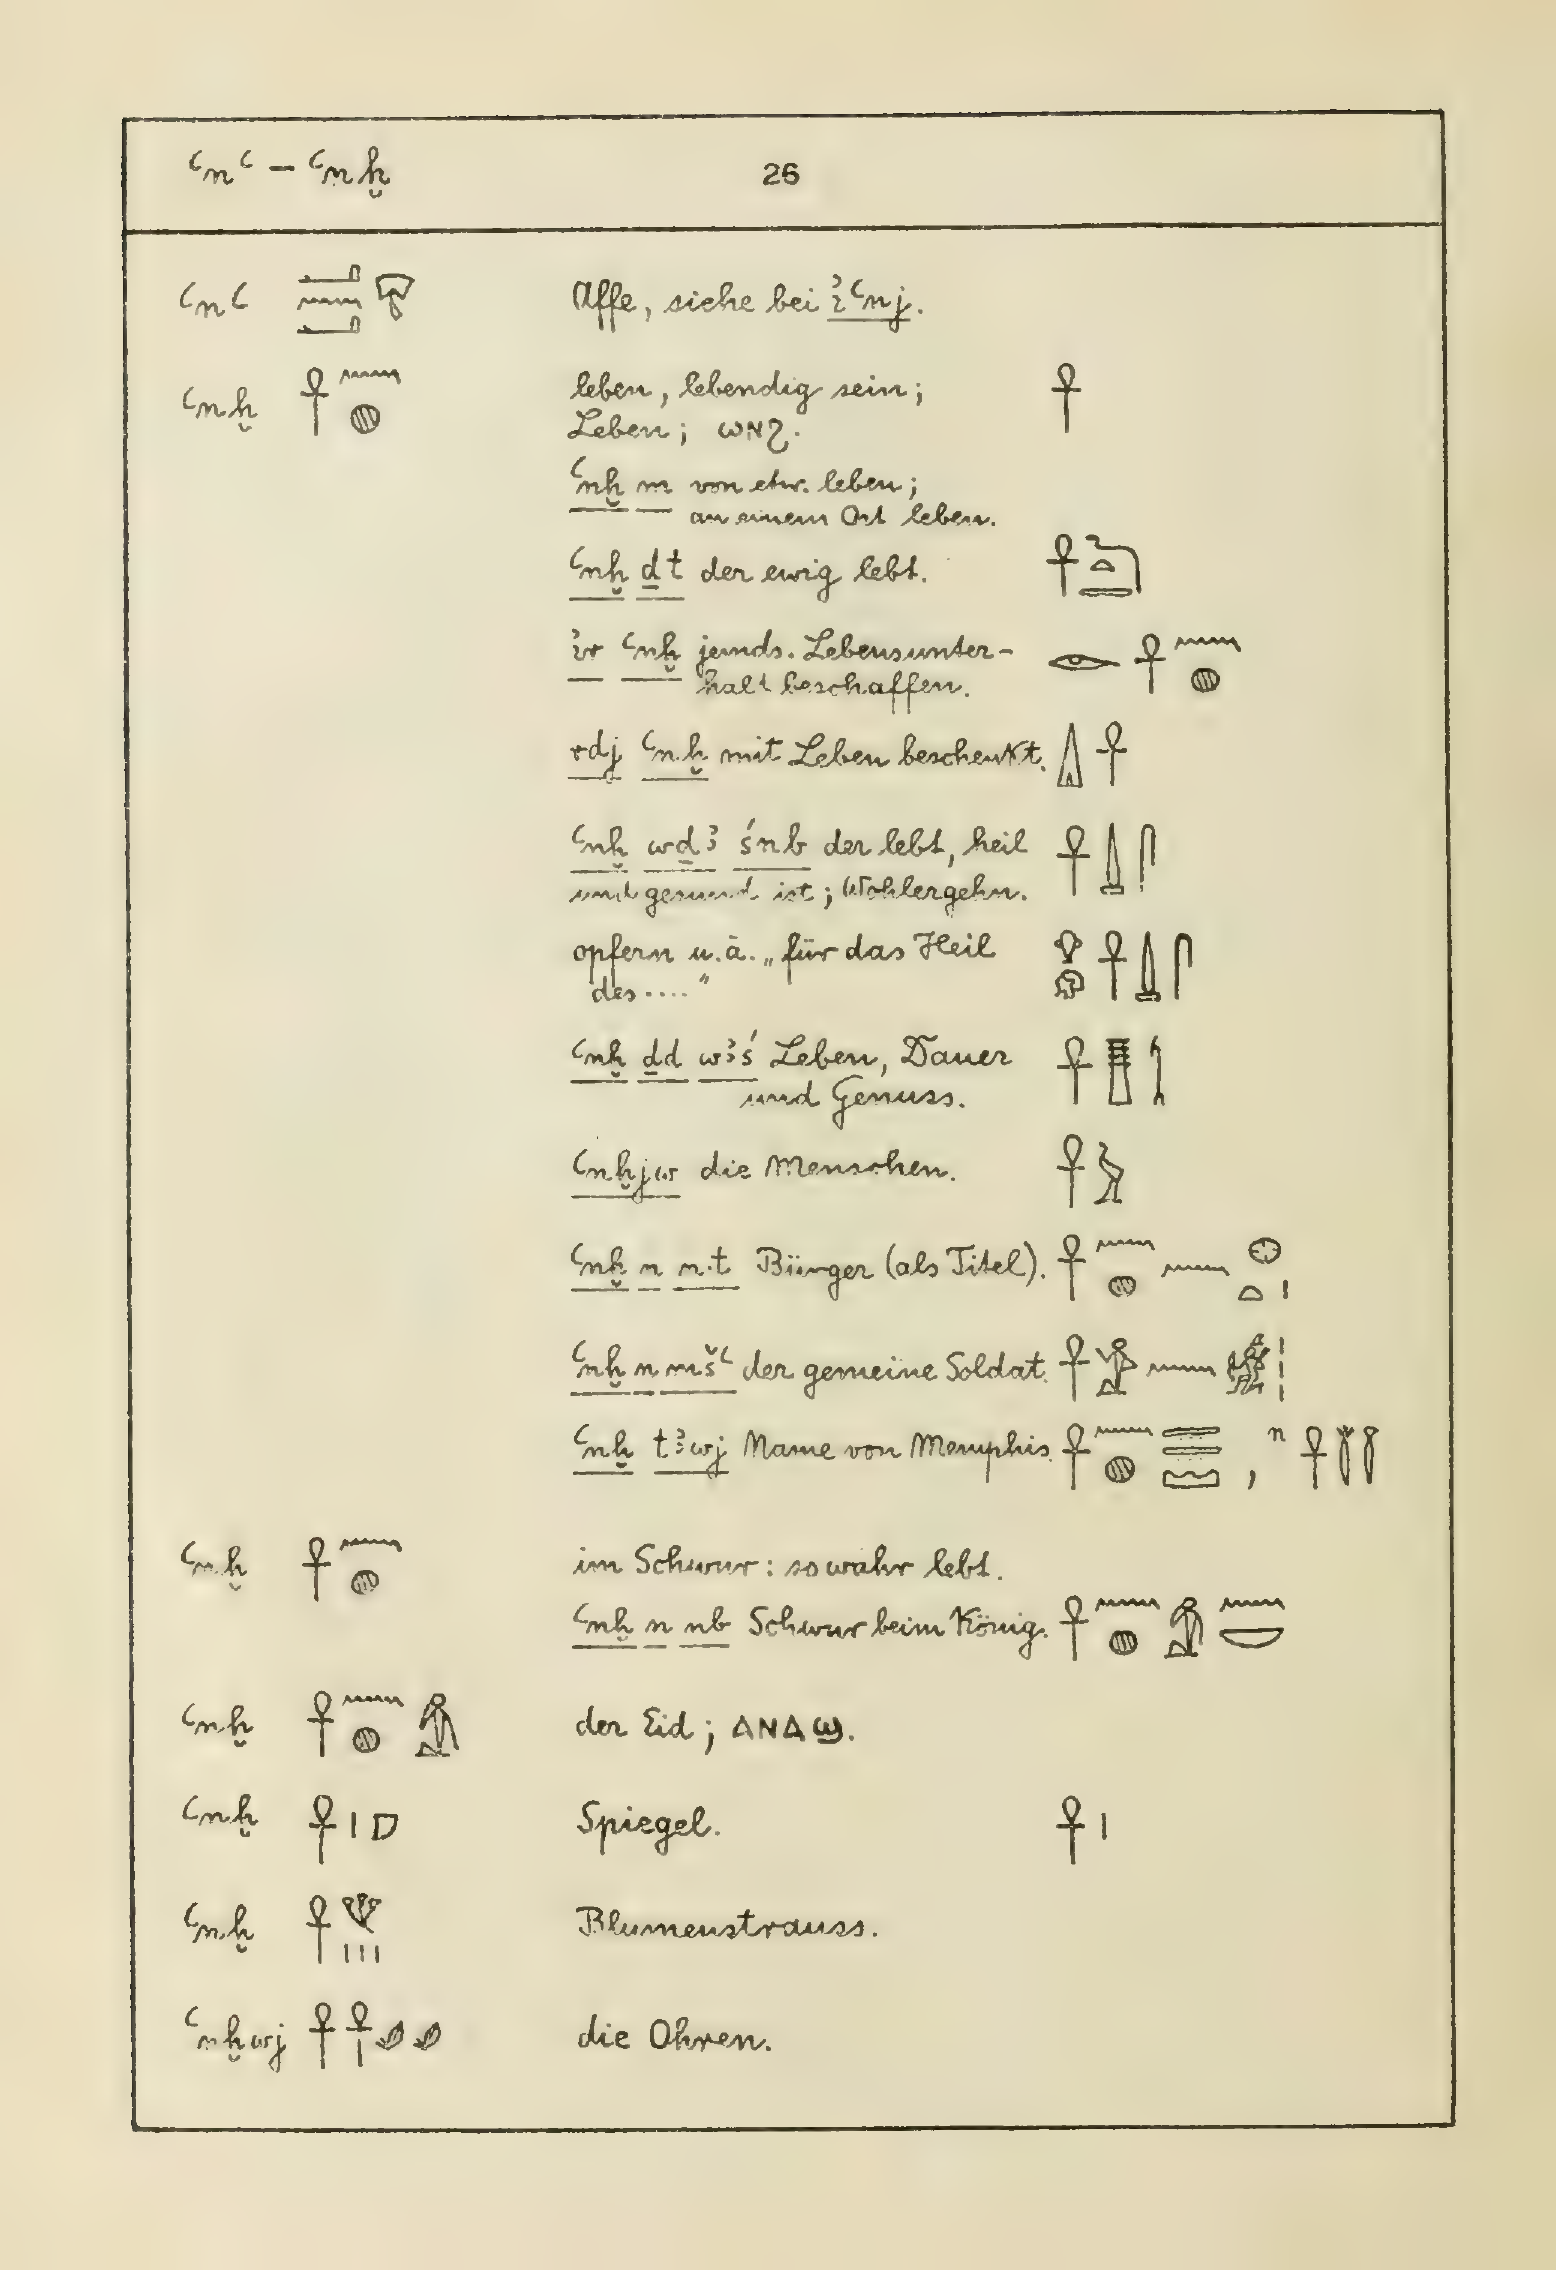 ꜥnꜥ – ꜥnḫ 26
ꜥnꜥ 𓂝𓈖𓂝𓄛 Affe, siehe bei ꞽꜥnj.
ꜥnḫ 𓋹𓈖𓐍 leben, lebendig sein; 𓋹
Leben; ⲱⲛϩ.
ꜥnḫ m von etw. leben;
an einem Ort leben.
ꜥnḫ ḏt der ewig lebt. 𓋹𓆓𓏏𓇾
ꞽr ꜥnḫ jemds. Lebensunter-
halt beschaffen. 𓁹𓋹𓈖𓐍
rdj ꜥnḫ mit Leben beschenkt. 𓏙𓋹
ꜥnḫ wḏꜣ śnb der lebt, heil 𓋹𓍑𓋴
und gesund ist; Wohlergehn.
opfern u.ä. „für das Heil 𓋹𓍑𓋴
des ...."
ꜥnḫ ḏd wꜣś Leben, Dauer 𓋹𓊽𓌀
und Genuss.
ꜥnḫjw die Menschen. 𓋹𓅱
ꜥnḫ n n·t Bürger (als Titel). 𓋹𓈖𓐍𓈖𓊖𓏏𓏤
ꜥnḫ n mšꜥ der gemeine Soldat. 𓋹𓀀𓈖𓀎𓏥
ꜥnḫ tꜣwj Name von Memphis. 𓋹𓈖𓐍𓇿𓇿𓈇, n 𓋹𓇅𓇅
ꜥnḫ 𓋹𓈖𓐍 im Schwur: so wahr lebt.
ꜥnḫ n nb Schwur beim König. 𓋹𓈖𓐍𓀁𓈖𓎟
ꜥnḫ 𓋹𓈖𓐍𓀁 der Eid; ⲁⲛⲁϣ.
ꜥnḫ 𓋹𓏤 Spiegel. 𓋹𓏤
ꜥnḫ 𓋹𓆰𓏥 Blumenstrauss.
ꜥnḫwj 𓋹𓋹 die Ohren.